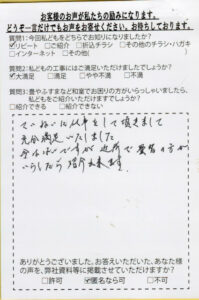 お客様のお声が私たちの励みになります。
どうぞ一言だけでもお声をお寄せください。お待ちしております。
質問1:今回私どもをどちらでお知りになりましたか?
☑リピート □ご紹介 □折込チラシ □その他のチラシ・ハガキ
□インターネット □その他( )
質問2:私どもの工事にはご満足いただけましたでしょうか?
☑大満足 □満足 □やや不満 □不満
質問3:畳やふすまなど和室でお困りの方がいらっしゃいましたら、
私どもをご紹介いただけますでしょうか?
□紹介できる □紹介できない
ていねいに仕事をして頂きまして
充分満足いたしました
近所で
の方が
いらしたら紹介出来ます.
ありがとうございました。お答えいただいた、あなた様
の声を、弊社資料等に掲載させていただけますか?
□許可 ☑匿名なら可 □不可